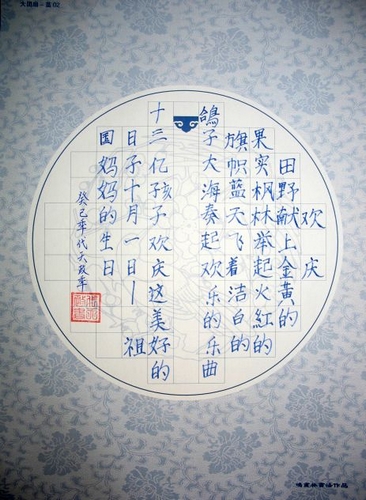 欢庆
田野献上金黄的
果实枫林举起火紅的
旗帜蓝天飞着洁白的
鸽子大海奏起欢乐的乐曲
十三亿孩子欢庆这美好的
日子十月一日—祖
国妈妈的生日
癸巳年